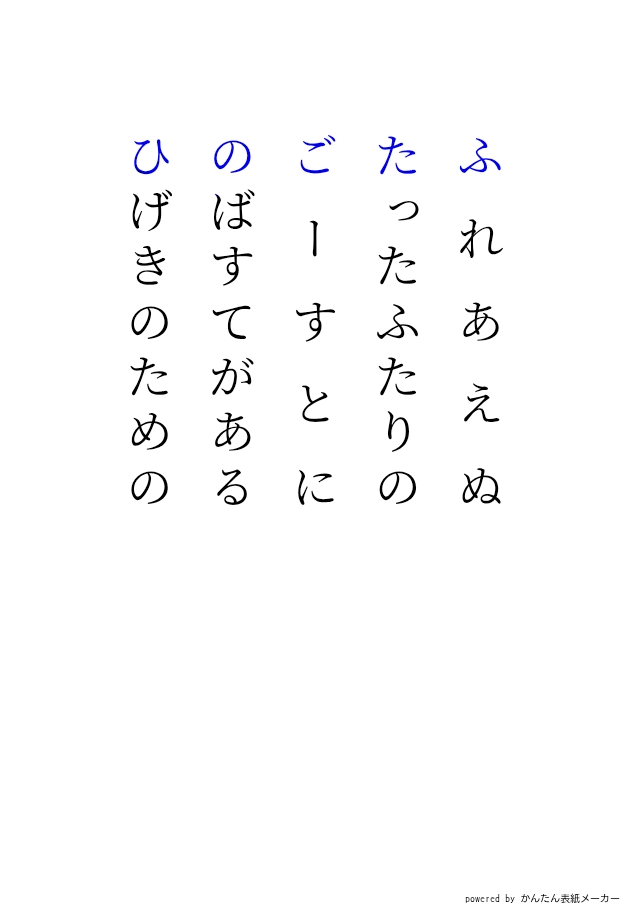 ふれあえぬ
たったふたりの
ごーすとに
のばすてがある
ひげきのための
powered by かんたん表紙メーカー